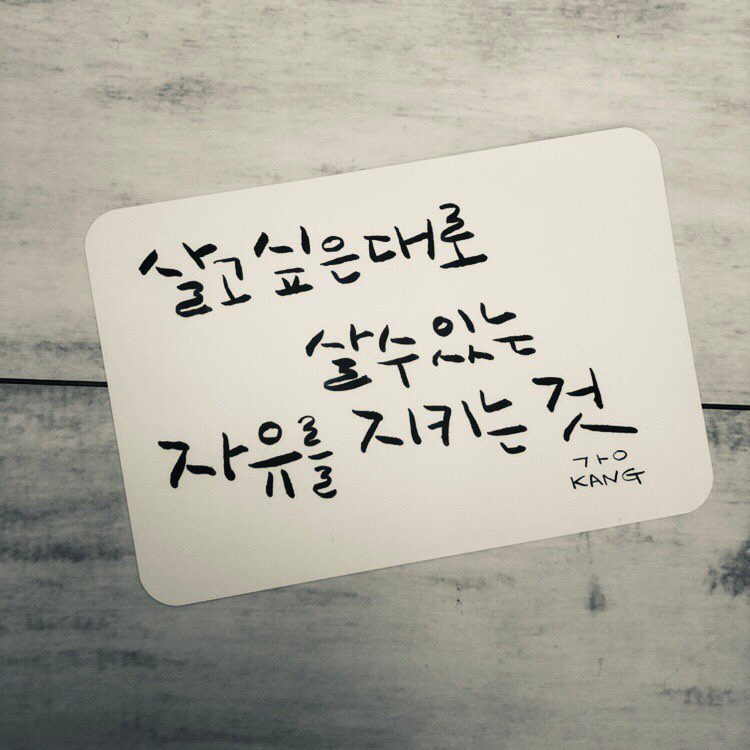 살고 싶은대로
살수있는
자유를 지키는 것
ㄱㅏㅇ
KANG